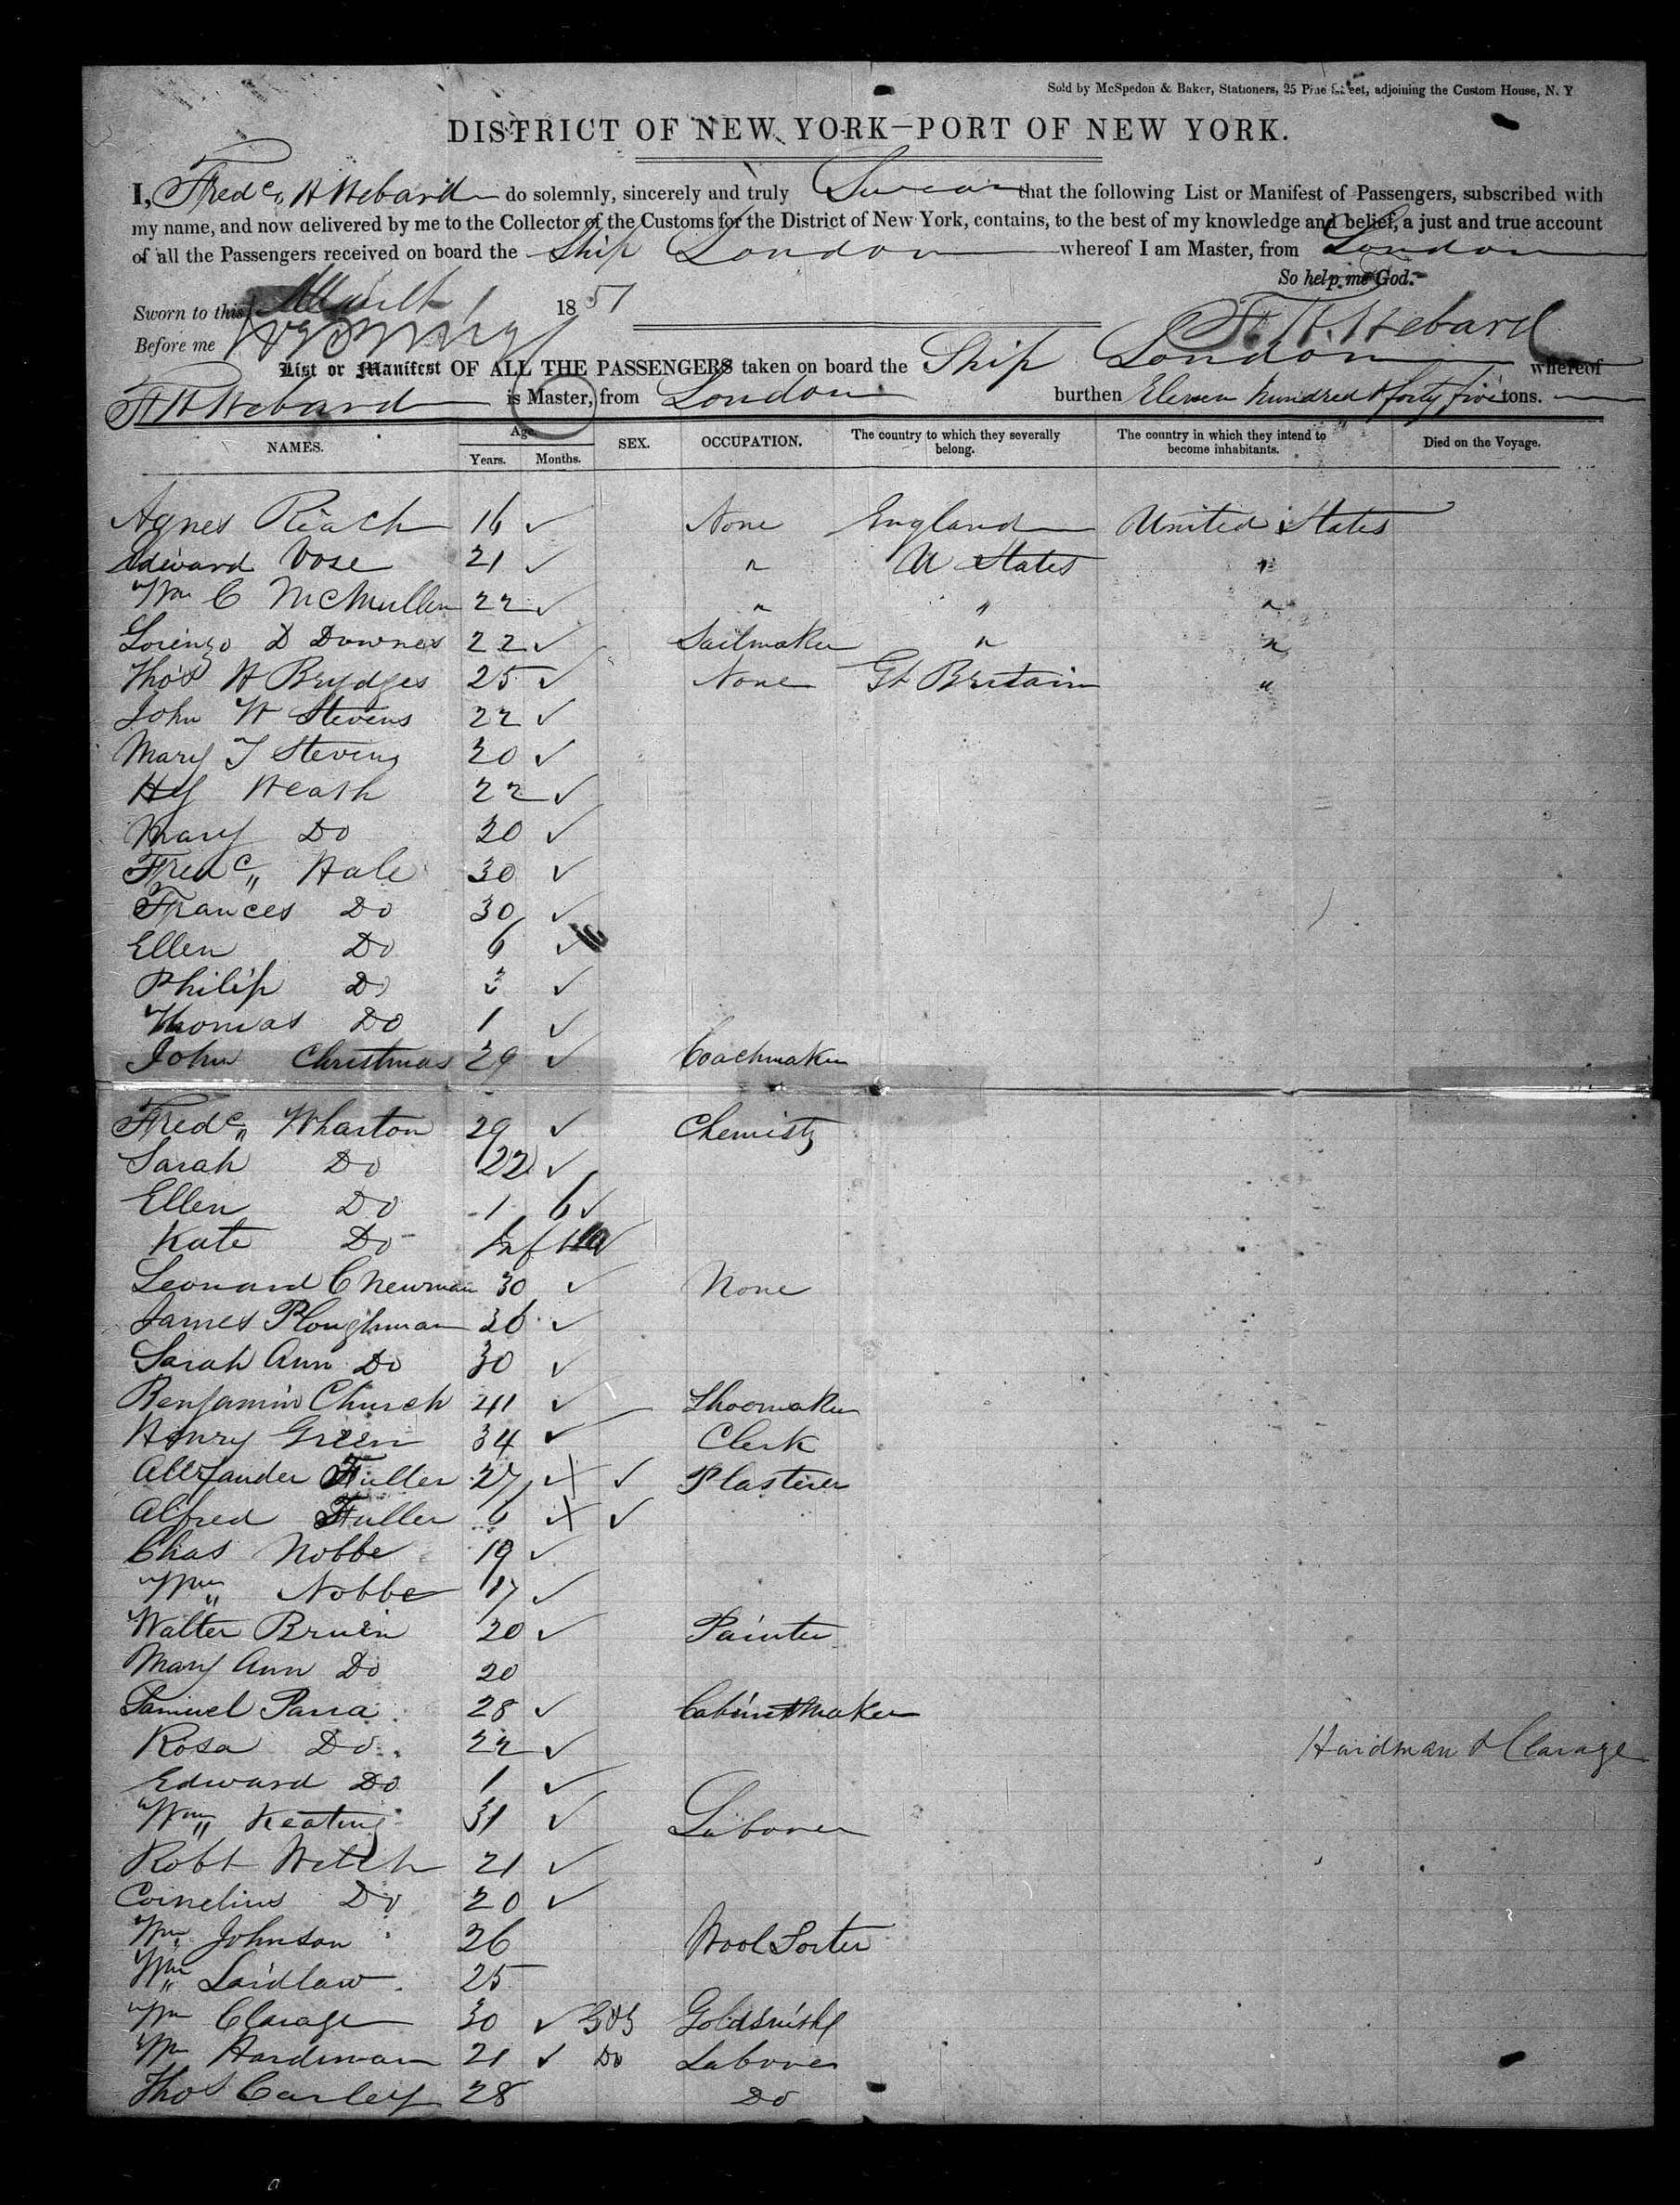 Sold by McSpedon & Baker, Stationers, 25 Pine Street, adjoining the Custom House, N. Y
DISTRICT OF NEW YORK—PORT OF NEW YORK.
I, Fredc. H Hebard do solemnly, sincerely and truly Swear that the following List or Manifest of Passengers, subscribed with
my name, and now delivered by me to the Collector of the Customs for the District of New York, contains, to the best of my knowledge and belief, a just and true account
of all the Passengers received on board the Ship London whereof I am Master, from London
So help me God.
Sworn to this March 1 1851
F. H. Hebard
Before me
List or Manifest OF ALL THE PASSENGERS taken on board the Ship London whereof
F H Hebard is Master, from London burthen Eleven hundred & forty five tons.
NAMES. Age. Years. Months. SEX. OCCUPATION. The country to which they severally belong. The country in which they intend to become inhabitants. Died on the Voyage.
Agnes Riach 16 ✓ None England United States
Edward Vose 21 ✓ " U States "
Wm C McMullen 22 ✓ " " "
Lorenzo D Downes 22 ✓ Sailmaker " "
Thos H Brydges 25 ✓ None Gt Britain "
John W Stevens 22 ✓
Mary T Stevens 20 ✓
Hy Heath 22 ✓
Mary Do 20 ✓
Fredc Hale 30 ✓
Frances Do 30 ✓
Ellen Do 6 ✓
Philip Do 3 ✓
Thomas Do 1 ✓
John Christmas 29 ✓ Coachmaker
Fredc Wharton 29 ✓ Chemist
Sarah Do 22 ✓
Ellen Do 1 6 ✓
Kate Do Inf ✓
Leonard C Newman 30 ✓ None
James Ploughman 36 ✓
Sarah Ann Do 30 ✓
Benjamin Church 41 ✓ Shoemaker
Henry Green 34 ✓ Clerk
Allexander Fuller 27 ✓ X ✓ Plasterer
Alfred Fuller 6 X ✓
Chas Nobbe 19 ✓
Wm Nobbe 17 ✓
Walter Bruin 20 ✓ Painter
Mary Ann Do 20
Samuel Parra 28 ✓ Cabinetmaker
Rosa Do 22 ✓ Hardman & Clarage
Edward Do 1 ✓
Wm Keating 31 ✓ Laborer
Robt Welch 21 ✓
Cornelius Do 20 ✓
Wm Johnson 26 Wool Sorter
Wm Laidlaw 25
Wm Clarage 30 ✓ Goldsmith
Wm Hardman 21 ✓ Do Laborer
Thos Carley 28 Do